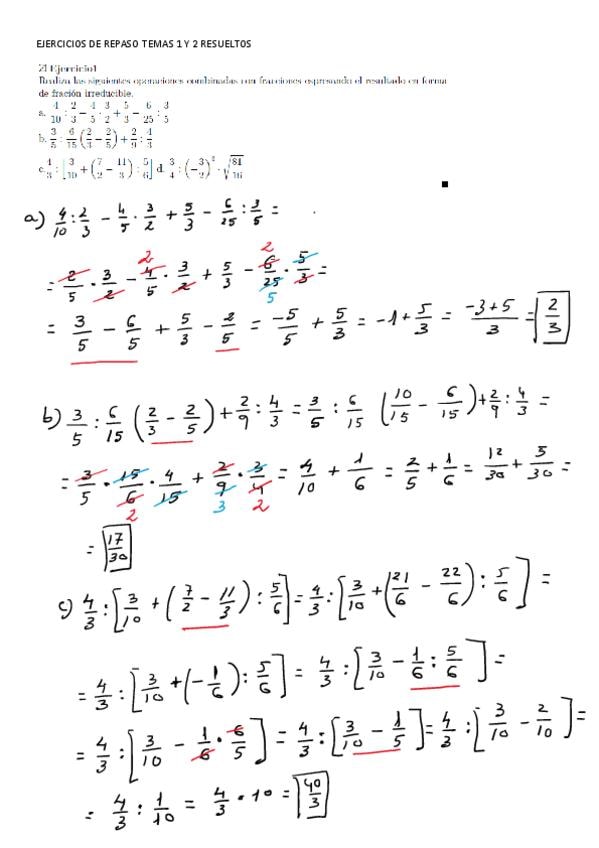 EJERCICIOS DE REPASO TEMAS 1 Y 2 RESUELTOS
Ejercicio1
Realiza las siguientes operaciones combinadas con fracciones expresando el resultado en forma
de fración irreducible.
a. 4/10 : 2/3 − 4/5 · 3/2 + 5/3 − 6/25 : 3/5
b. 3/5 : 6/15 (2/3 − 2/5) + 2/9 : 4/3
c. 4/3 : [3/10 + (7/2 − 11/3) : 5/6] d. 3/4 : (−3/2)² · √(81/16)
a) 4/10 : 2/3 − 4/5 · 3/2 + 5/3 − 6/25 : 3/5 =
= 2/5 · 3/2 − 4/5 · 3/2 + 5/3 − 6/25 · 5/3 =
= 3/5 − 6/5 + 5/3 − 2/5 = −5/5 + 5/3 = −1 + 5/3 = −3+5/3 = 2/3
b) 3/5 : 6/15 (2/3 − 2/5) + 2/9 : 4/3 = 3/5 : 6/15 (10/15 − 6/15) + 2/9 : 4/3 =
= 3/5 · 15/6 · 4/15 + 2/9 · 3/4 = 4/10 + 1/6 = 2/5 + 1/6 = 12/30 + 5/30 =
= 17/30
c) 4/3 : [3/10 + (7/2 − 11/3) : 5/6] = 4/3 : [3/10 + (21/6 − 22/6) : 5/6] =
= 4/3 : [3/10 + (−1/6) : 5/6] = 4/3 : [3/10 − 1/6 : 5/6] =
= 4/3 : [3/10 − 1/6 · 6/5] = 4/3 : [3/10 − 1/5] = 4/3 : [3/10 − 2/10] =
= 4/3 : 1/10 = 4/3 · 10 = 40/3